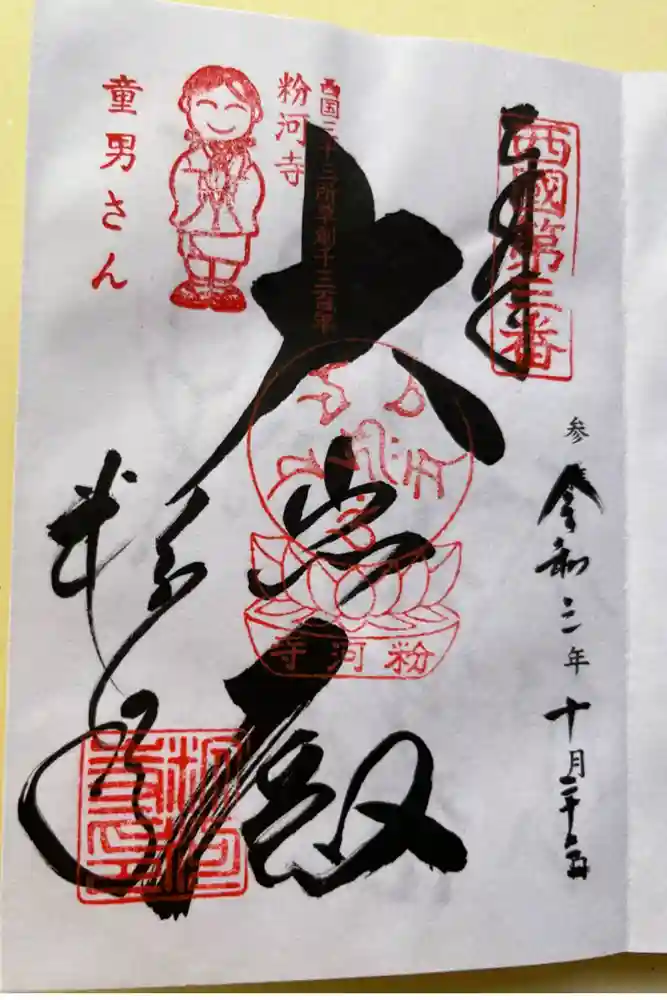 奉拝
西國第三番
参
令和三年十月二十一日
西国三十三所草創千三百年
粉河寺
童男さん
大悲殿
粉河寺
粉河寺